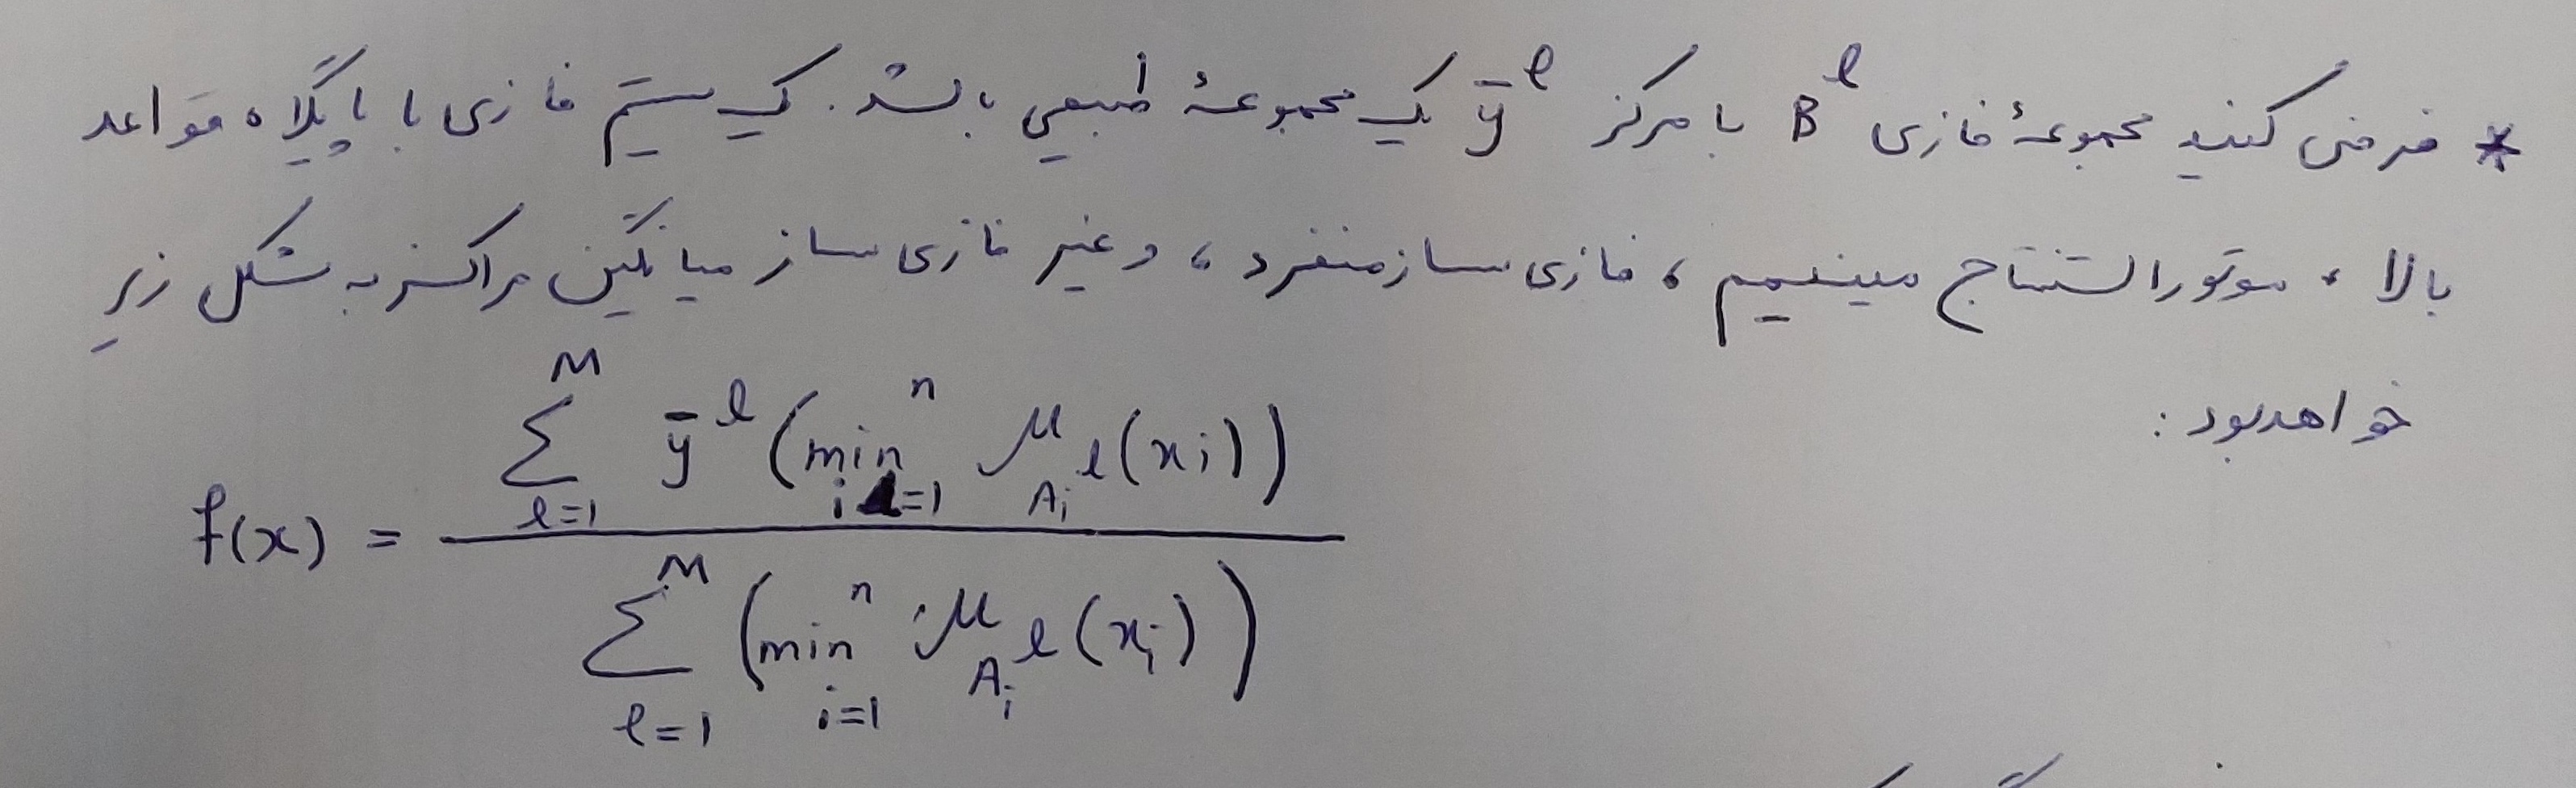 * فرض کنید مجموعهٔ فازی B^l با مرکز ȳ^l یک مجموعهٔ طبیعی باشد. یک سیستم فازی با پایگاه قواعد
بالا، موتور استنتاج مینیمم، فازی ساز منفرد، و غیر فازی ساز میانگین مراکز به شکل زیر
خواهد بود:
f(x) = \frac{\sum_{l=1}^{M} ȳ^l (min_{i=1}^{n} μ_{A_i^l}(x_i))}{\sum_{l=1}^{M} (min_{i=1}^{n} μ_{A_i^l}(x_i))}